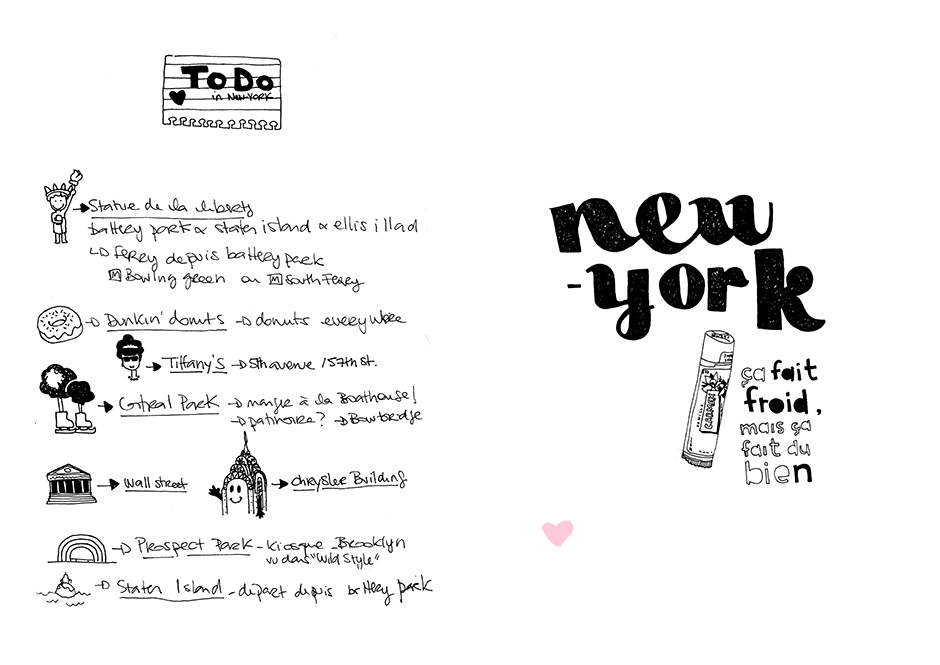 ToDo
in New York
Statue de la liberty
battery park & staten island & ellis illad
ferry depuis battery park
M Bowling green ou M South Ferry
Dunkin' donuts → donuts everywere
Tiffany's → 5th avenue / 57th st.
Central Park → manger à la Boathouse!
→ patinoire? → Bow bridge
Wall street → chrysler Building
Prospect Park - Kiosque - Brooklyn
vu dans "Wild Style"
Staten Island - départ depuis battery park
new
-york
CARMEX
ça fait
froid,
mais ça
fait du
bien